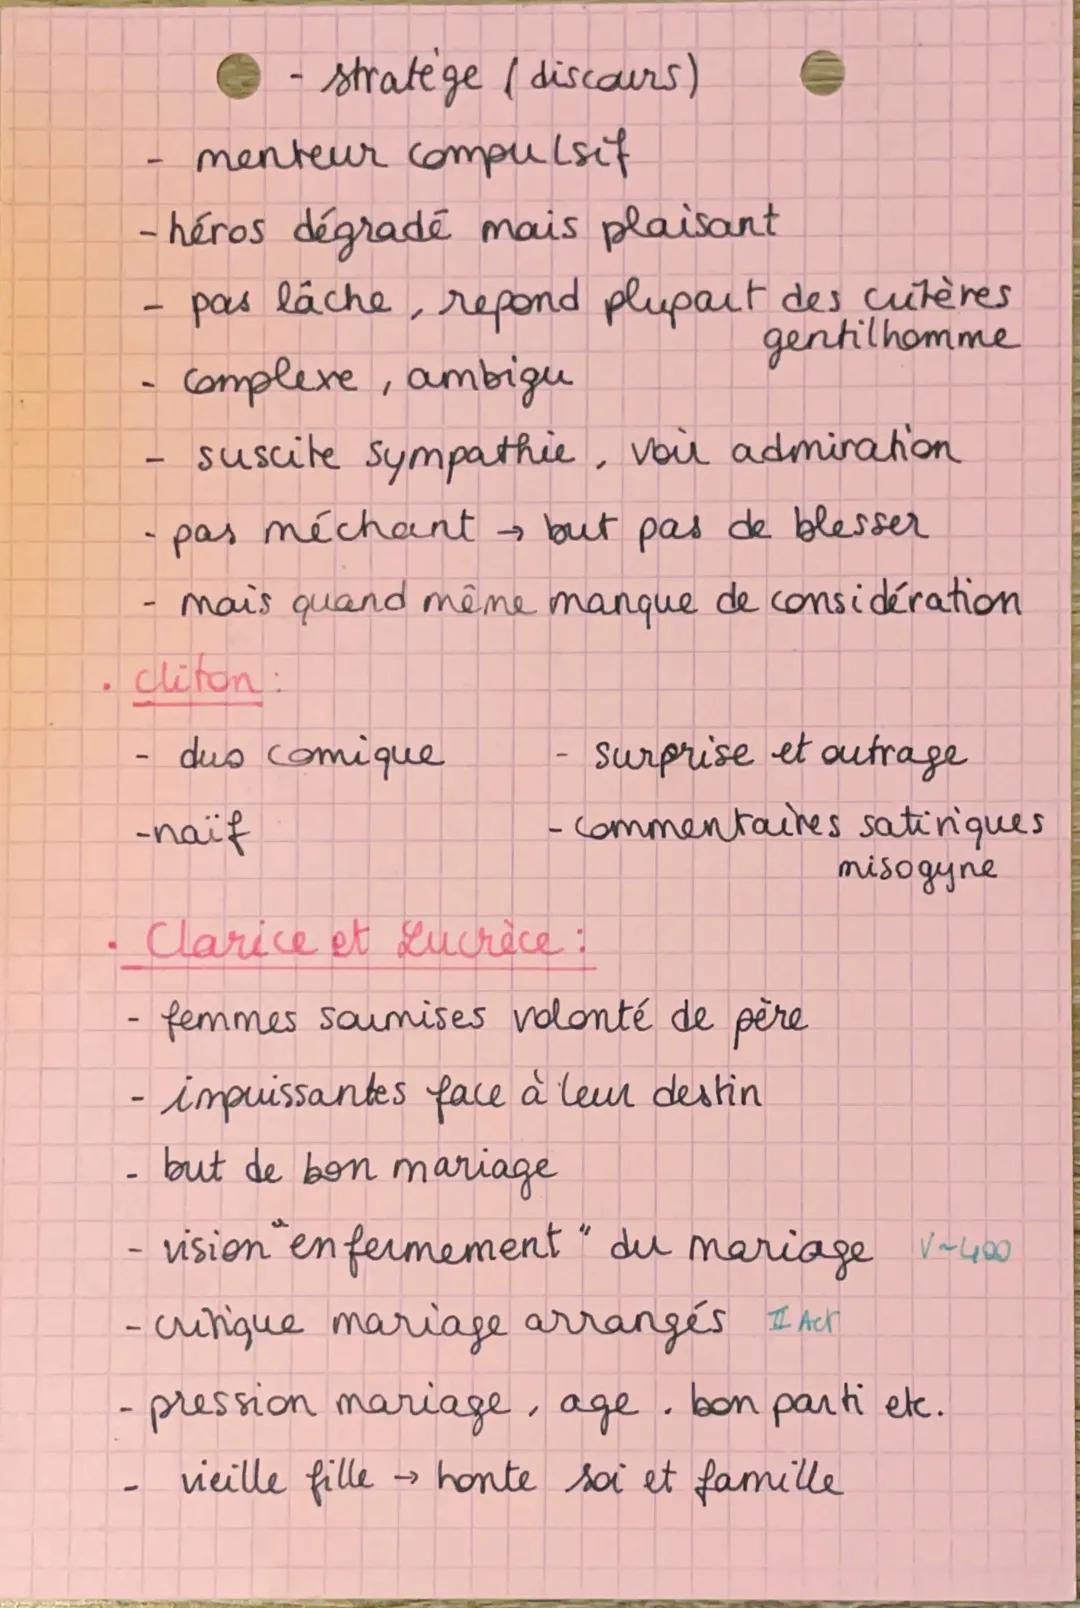 - stratège (discours)
- menteur compulsif
- héros dégradé mais plaisant
- pas lâche, repond plupart des critères
gentilhomme
- complexe, ambigu
- suscite sympathie, voir admiration
- pas méchant → but pas de blesser
- mais quand même manque de considération
• Cliton :
- duo comique - surprise et outrage
- naïf - commentaires satiriques
misogyne
• Clarice et Lucrèce :
- femmes soumises volonté de père
- impuissantes face à leur destin
- but de bon mariage
- vision "enfermement" du mariage V~400
- critique mariage arrangés II Act
- pression mariage, age, bon parti etc.
- vieille fille → honte soi et famille